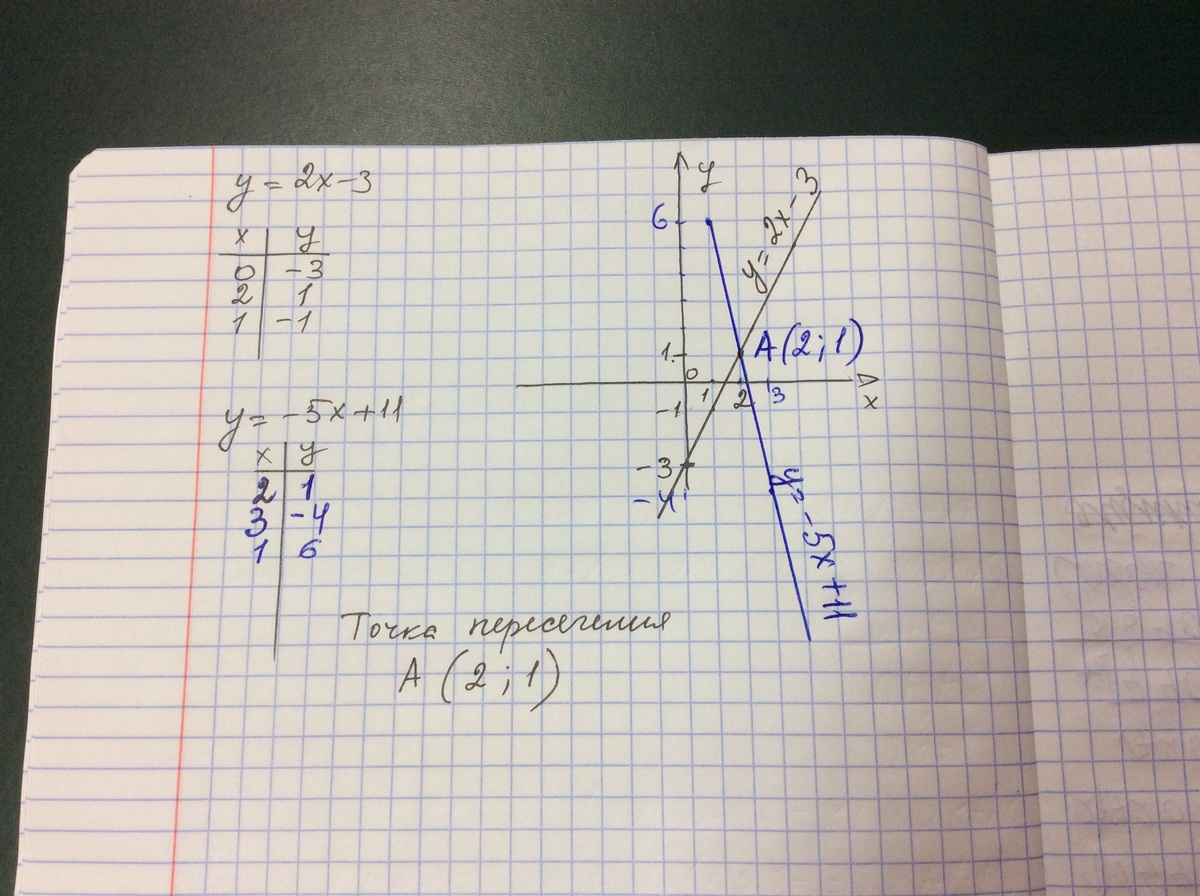 y = 2x-3
x y
0 -3
2 1
1 -1
y = -5x+11
x y
2 1
3 -4
1 6
Точка пересечения
A (2; 1)
y
6
y = 2x-3
1
A (2; 1)
0
1 2 3
x
-1
-3
-4
y = -5x+11